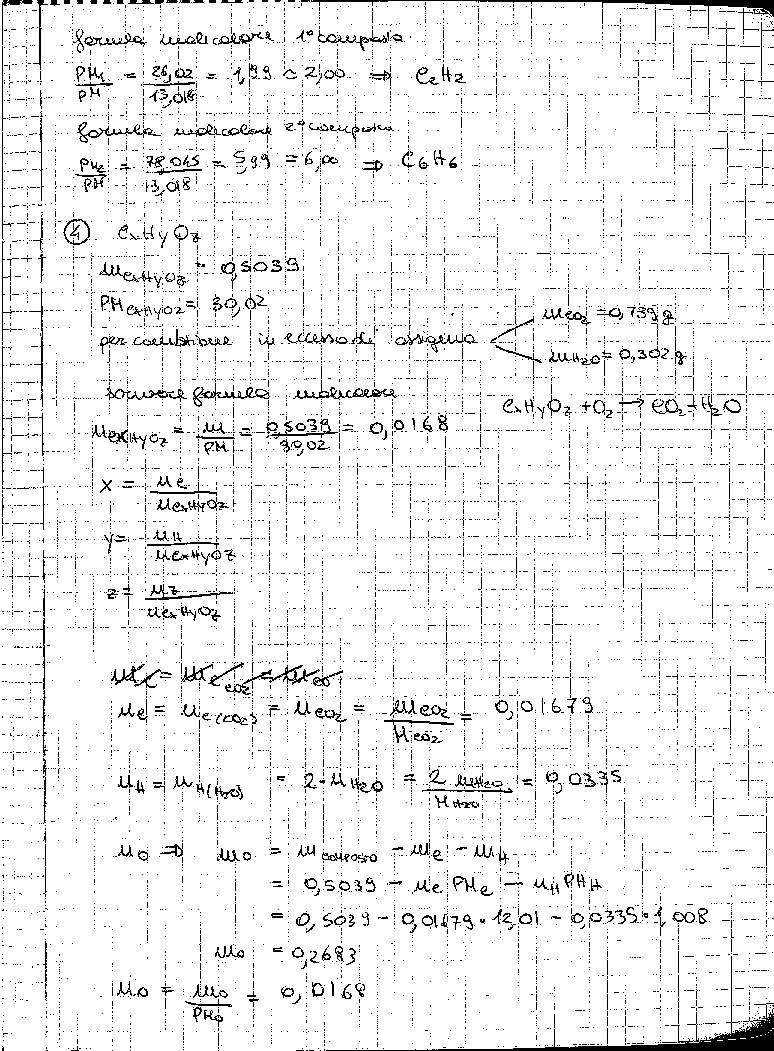 formula molecolare 1° composto
PM₁/PM = 26,02/13,018 = 1,99 ~ 2,00 ⇒ C₂H₂
formula molecolare 2° composto
PM₂/PM = 78,045/13,018 = 5,99 = 6,00 ⇒ C₆H₆
④ CxHyOz
mCxHyOz = 0,5039
PMCxHyOz = 30,02
per combustione in eccesso di ossigeno
mCO₂ = 0,739 g
mH₂O = 0,302 g
scrivere formula molecolare
CxHyOz + O₂ → CO₂ + H₂O
nCxHyOz = m/PM = 0,5039/30,02 = 0,0168
x = nC/nCxHyOz
y = nH/nCxHyOz
z = nz/nCxHyOz
nC = nC(CO₂) = nCO₂ = mCO₂/MCO₂ = 0,01679
nH = nH(H₂O) = 2·nH₂O = 2 mH₂O/MH₂O = 0,0335
nO ⇒ mO = mcomposto - mC - mH
= 0,5039 - nC PMC - nH PMH
= 0,5039 - 0,01679 · 12,01 - 0,0335 · 1,008
mO = 0,2683
nO = mO/PMO = 0,0168